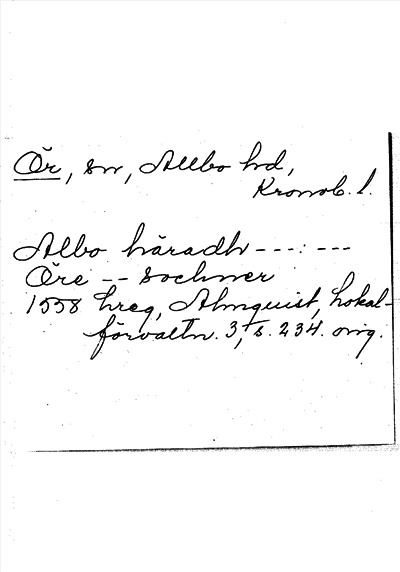 Ör, sn, Allbo hd,
Kronob. l.
Albo häradh ---:---
Öre -- sochner
1558 hreg, Almquist, Lokal-
förvaltn. 3, s. 234. orig.